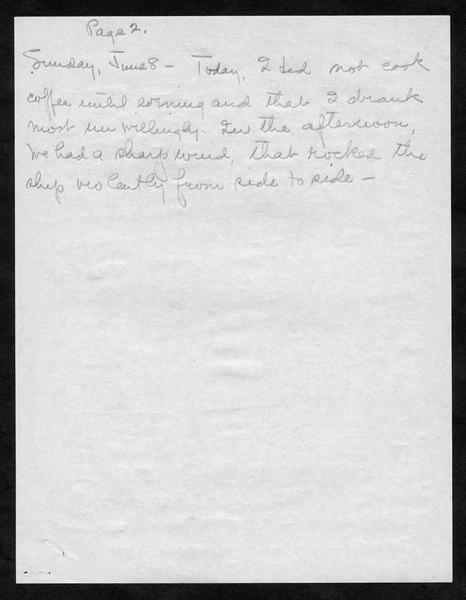 Page 2.
Sunday, June 8 - Today, I did not cook
coffee until evening and that I drank
most unwillingly. In the afternoon,
we had a sharp wind, that rocked the
ship violently from side to side -